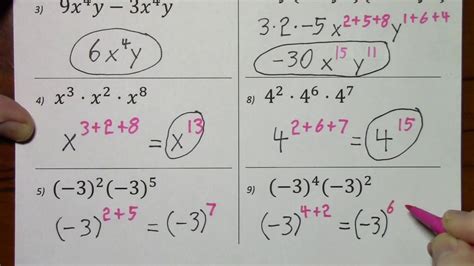 3) 9x⁴y − 3x⁴y
6x⁴y
3·2·−5x²⁺⁵⁺⁸y¹⁺⁶⁺⁴
−30x¹⁵y¹¹
4) x³ · x² · x⁸
x³⁺²⁺⁸ = x¹³
8) 4² · 4⁶ · 4⁷
4²⁺⁶⁺⁷ = 4¹⁵
5) (−3)²(−3)⁵
(−3)²⁺⁵ = (−3)⁷
9) (−3)⁴(−3)²
(−3)⁴⁺² = (−3)⁶